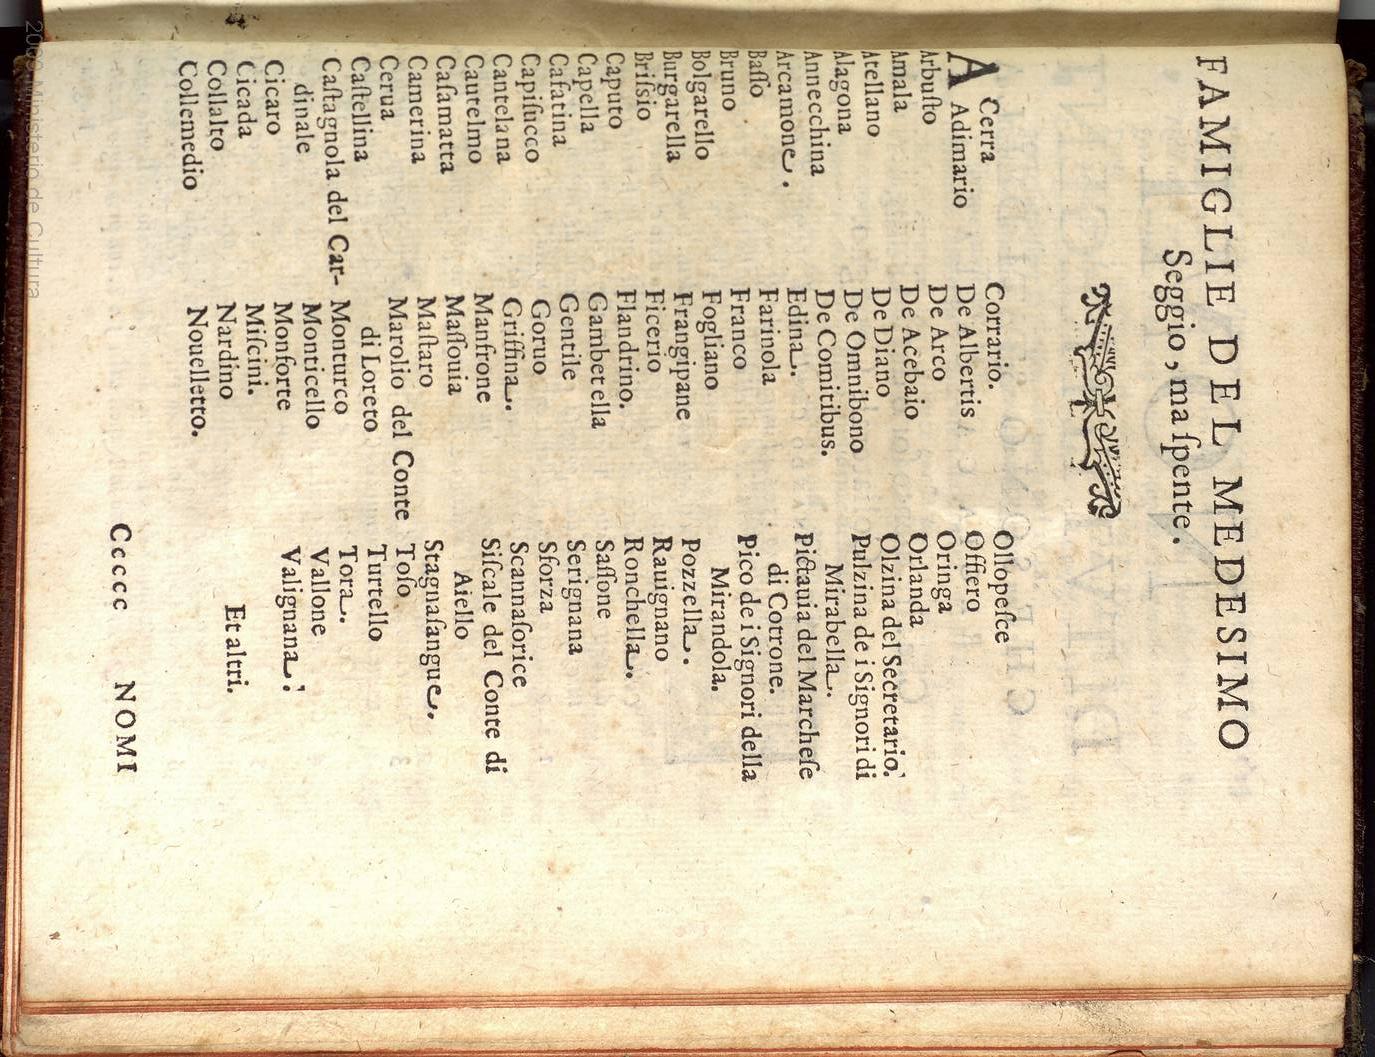 FAMIGLIE DEL MEDESIMO
Seggio, ma ſpente.
A Cerra
Adimario
Arbuſto
Amala
Atellano
Alagona
Annecchina
Arcamone.
Baſſo
Bruno
Bolgarello
Burgarella
Briſsio
Caputo
Capella
Cafatina
Capiſucco
Cantelana
Cautelmo
Caſamatta
Camerina
Cerua
Caſtellina
Caſtagnola del Car-
dinale
Cicaro
Cicada
Collalto
Collemedio
Corrario.
De Albertis
De Arco
De Acebaio
De Diano
De Omnibono
De Comitibus.
Edina.
Farinola
Franco
Fogliano
Frangipane
Ficerio
Flandrino.
Gambetella
Gentile
Goruo
Griffina.
Manfrone
Maſſouia
Maſtaro
Marolio del Conte
di Loreto
Monturco
Monticello
Monforte
Miſcini.
Nardino
Nouelletto.
Ollopeſce
Offiero
Oringa
Orlanda
Olzina del Secretario.
Pulzina de i Signori di
Mirabella.
Pictauia del Marcheſe
di Cotrone.
Pico de i Signori della
Mirandola.
Pozzella.
Rauignano
Ronchella.
Saſſone
Serignana
Sforza
Scannaſorice
Siſcale del Conte di
Aiello
Stagnaſangue.
Toſo
Turtello
Tora.
Vallone
Valignana.
Et altri.
Ccccc NOMI
Ministerio de Cultura